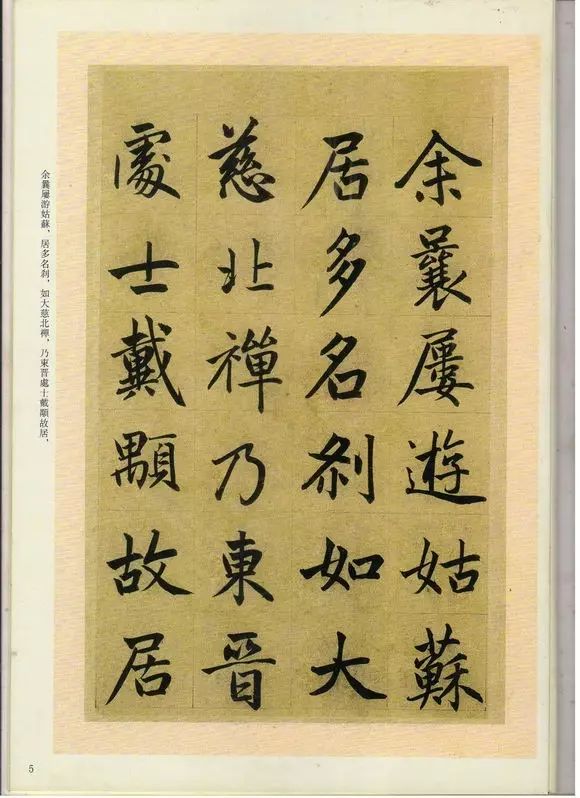 余曩屢遊姑蘇
居多名刹如大
慈北禪乃東晋
處士戴顒故居
余曩屢游姑蘇、居多名刹，如大慈北禪，乃東晋處士戴顒故居，
5